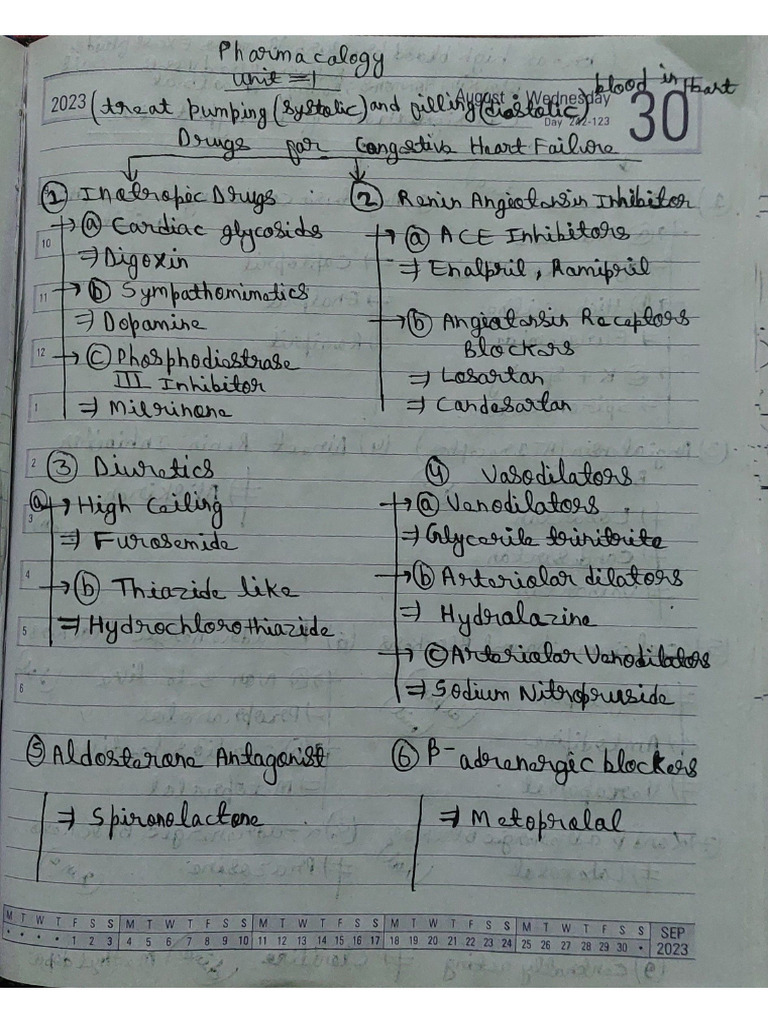 Pharmacalogy
Unit = 1
blood in Heart
August • Wednesday
2023 (treat pumping (systolic) and filling (diastolic)
Day 242-123
30
Drugs for Congestive Heart Failure
① Inotropic Drugs
→ ⓐ Cardiac glycosids
10
⇒ Digoxin
11 → ⓑ Sympathomimetics
⇒ Dopamine
12 → ⓒ Phosphodiastrase
III Inhibitor
1 ⇒ Milrinone
② Renin Angiotensin Inhibitor
→ ⓐ ACE Inhibitors
⇒ Enalpril, Ramipril
→ ⓑ Angiotensin Receptors
Blockers
⇒ Losartan
⇒ Candesartan
2 ③ Diuretics
ⓐ → High Ceiling
3
⇒ Furosemide
4 → ⓑ Thiazide like
5 ⇒ Hydrochlorothiazide
6
④ Vasodilators
→ ⓐ Venodilators
⇒ Glycerile trinitrite
→ ⓑ Arteriolar dilators
⇒ Hydralazine
→ ⓒ Arteriolar Venodilators
⇒ Sodium Nitropruside
⑤ Aldosterone Antagonist
⇒ Spironolactone
⑥ β-adrenergic blockers
⇒ Metoprolal
M T W T F S S M T W T F S S M T W T F S S M T W T F S S M T W T F S S SEP
• • • • 1 2 3 4 5 6 7 8 9 10 11 12 13 14 15 16 17 18 19 20 21 22 23 24 25 26 27 28 29 30 • 2023